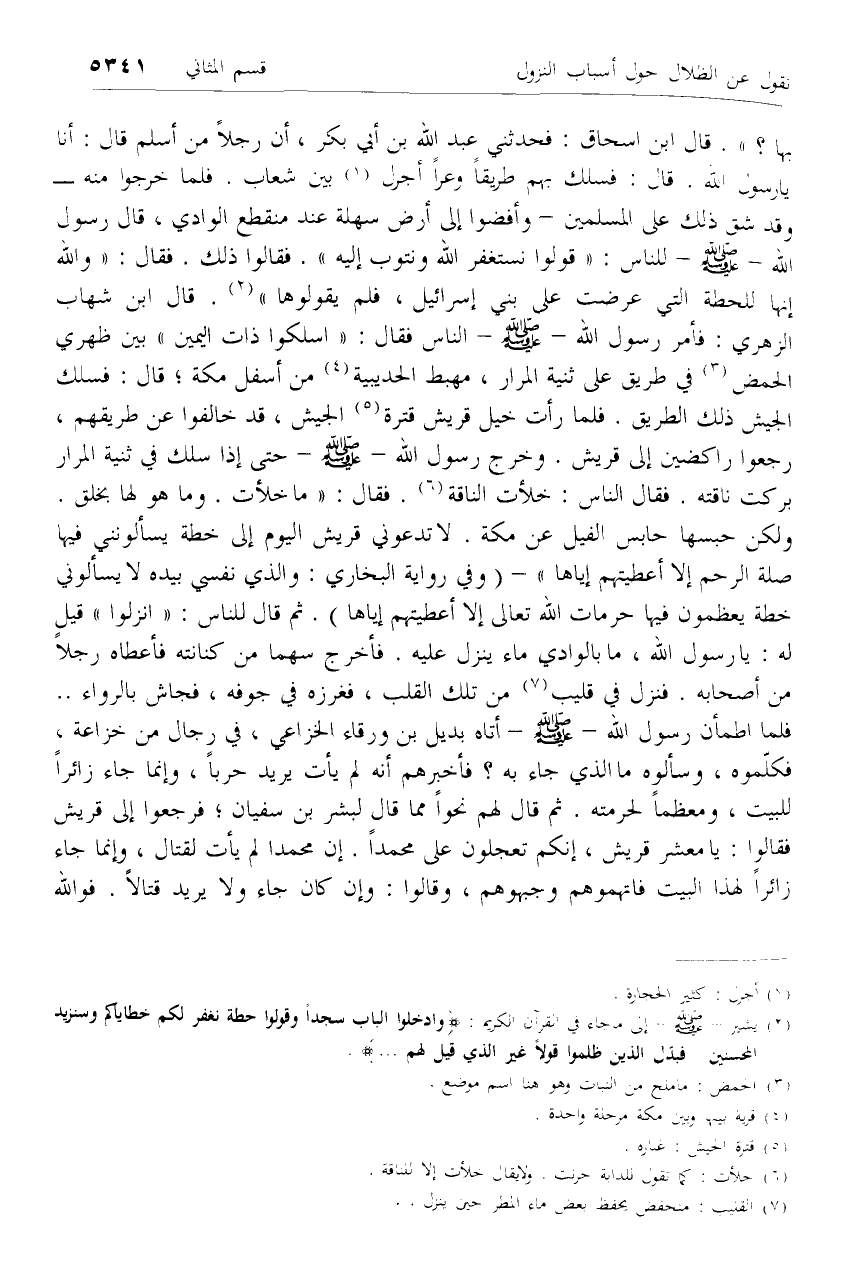 نقول عن الظلال حول أسباب النزول قسم المثاني ٥٣٤١
بها ؟ » . قال ابن اسحاق : فحدثني عبد الله بن أبي بكر ، أن رجلاً من أسلم قال : أنا
يارسول الله . قال : فسلك بهم طريقاً وعراً أجرل (١) بين شعاب . فلما خرجوا منه ــ
وقد شق ذلك على المسلمين – وأفضوا إلى أرض سهلة عند منقطع الوادي ، قال رسول
الله – ﷺ – للناس : « قولوا نستغفر الله ونتوب إليه » . فقالوا ذلك . فقال : « والله
إنها للحطة التي عرضت على بني إسرائيل ، فلم يقولوها »(٢) . قال ابن شهاب
الزهري : فأمر رسول الله – ﷺ – الناس فقال : « اسلكوا ذات اليمين » بين ظهري
الحمض(٣) في طريق على ثنية المرار ، مهبط الحديبية(٤) من أسفل مكة ؛ قال : فسلك
الجيش ذلك الطريق . فلما رأت خيل قريش قترة(٥) الجيش ، قد خالفوا عن طريقهم ،
رجعوا راكضين إلى قريش . وخرج رسول الله – ﷺ – حتى إذا سلك في ثنية المرار
بركت ناقته . فقال الناس : خلأت الناقة(٦) . فقال : « ماخلأت . وما هو لها بخلق .
ولكن حبسها حابس الفيل عن مكة . لاتدعوني قريش اليوم إلى خطة يسألونني فيها
صلة الرحم إلا أعطيتهم إياها » – ( وفي رواية البخاري : والذي نفسي بيده لا يسألوني
خطة يعظمون فيها حرمات الله تعالى إلا أعطيتهم إياها ) . ثم قال للناس : « انزلوا » قيل
له : يارسول الله ، مابالوادي ماء ينزل عليه . فأخرج سهما من كنانته فأعطاه رجلاً
من أصحابه . فنزل في قليب(٧) من تلك القلب ، فغرزه في جوفه ، فجاش بالرواء ..
فلما اطمأن رسول الله – ﷺ – أتاه بديل بن ورقاء الخزاعي ، في رجال من خزاعة ،
فكلّموه ، وسألوه ماالذي جاء به ؟ فأخبرهم أنه لم يأت يريد حرباً ، وإنما جاء زائراً
للبيت ، ومعظماً لحرمته . ثم قال لهم نحواً مما قال لبشر بن سفيان ؛ فرجعوا إلى قريش
فقالوا : يامعشر قريش ، إنكم تعجلون على محمداً . إن محمدا لم يأت لقتال ، وإنما جاء
زائراً لهذا البيت فاتهموهم وجبهوهم ، وقالوا : وإن كان جاء ولا يريد قتالاً . فوالله
(١) أجرل : كثير الحجارة .
(٢) يشير – ﷺ – إلى ماجاء في القرآن الكريم : ﴿ وادخلوا الباب سجداً وقولوا حطة نغفر لكم خطاياكم وسنزيد
المحسنين فبدّل الذين ظلموا قولاً غير الذي قيل لهم ... ﴾ .
(٣) الحمض : ماملح من النبات وهو هنا اسم موضع .
(٤) قرية بينها وبين مكة مرحلة واحدة .
(٥) قترة الجيش : غباره .
(٦) خلأت : كما تقول للدابة حرنت . ولايقال خلأت إلا للناقة .
(٧) القليب : منخفض يحفظ بعض ماء المطر حين ينزل . .